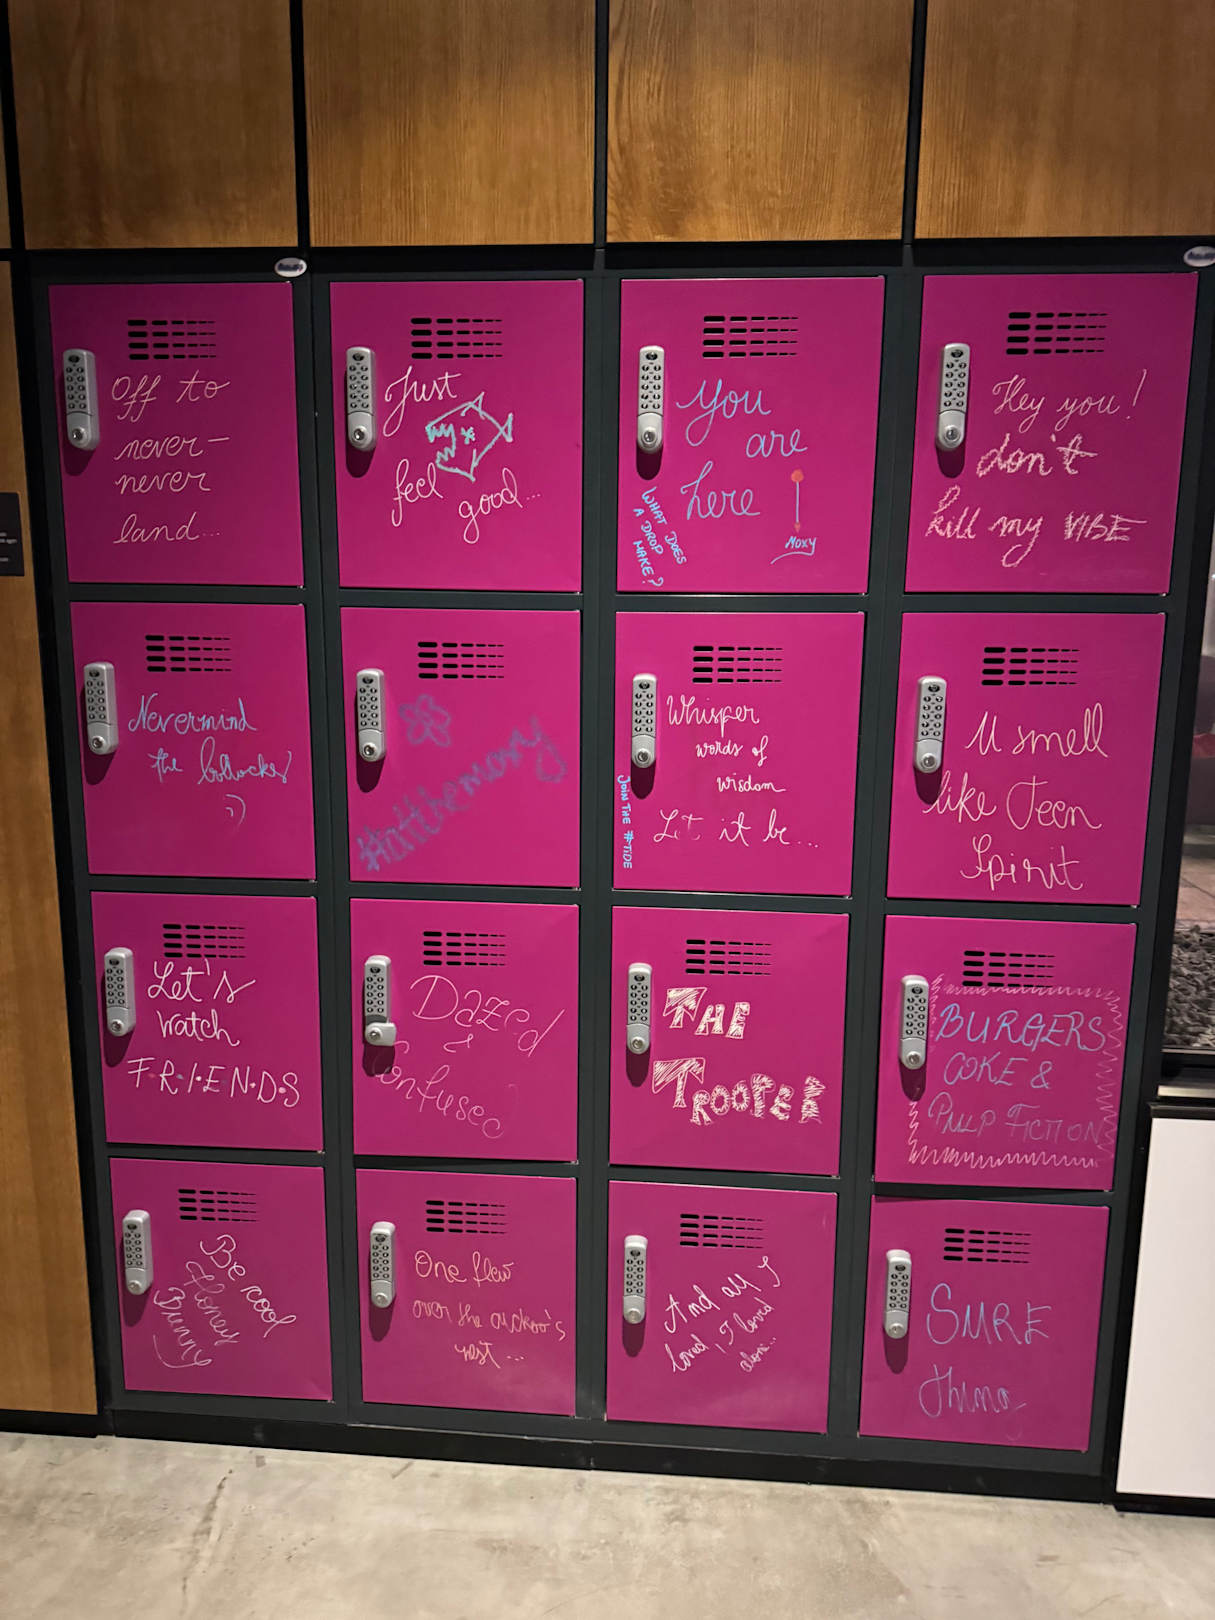 Off to
never-
never
land...
Just
feel
good...
You
are
here
Moxy
WHAT DOES
A DROP
MAKE?
Hey you!
don't
kill my VIBE
Nevermind
the bollocks!
:)
#atthemoxy
Whisper
words of
wisdom
Let it be...
JOIN THE #TIDE
U smell
like Teen
Spirit
Let's
watch
F.R.I.E.N.D.S
Dazed
&
Confused
THE
TROOPER
BURGERS
COKE &
PULP FICTION
Be cool
Honey
Bunny
One flew
over the cuckoo's
nest...
And all I
loved, I loved
alone...
SURE
thing